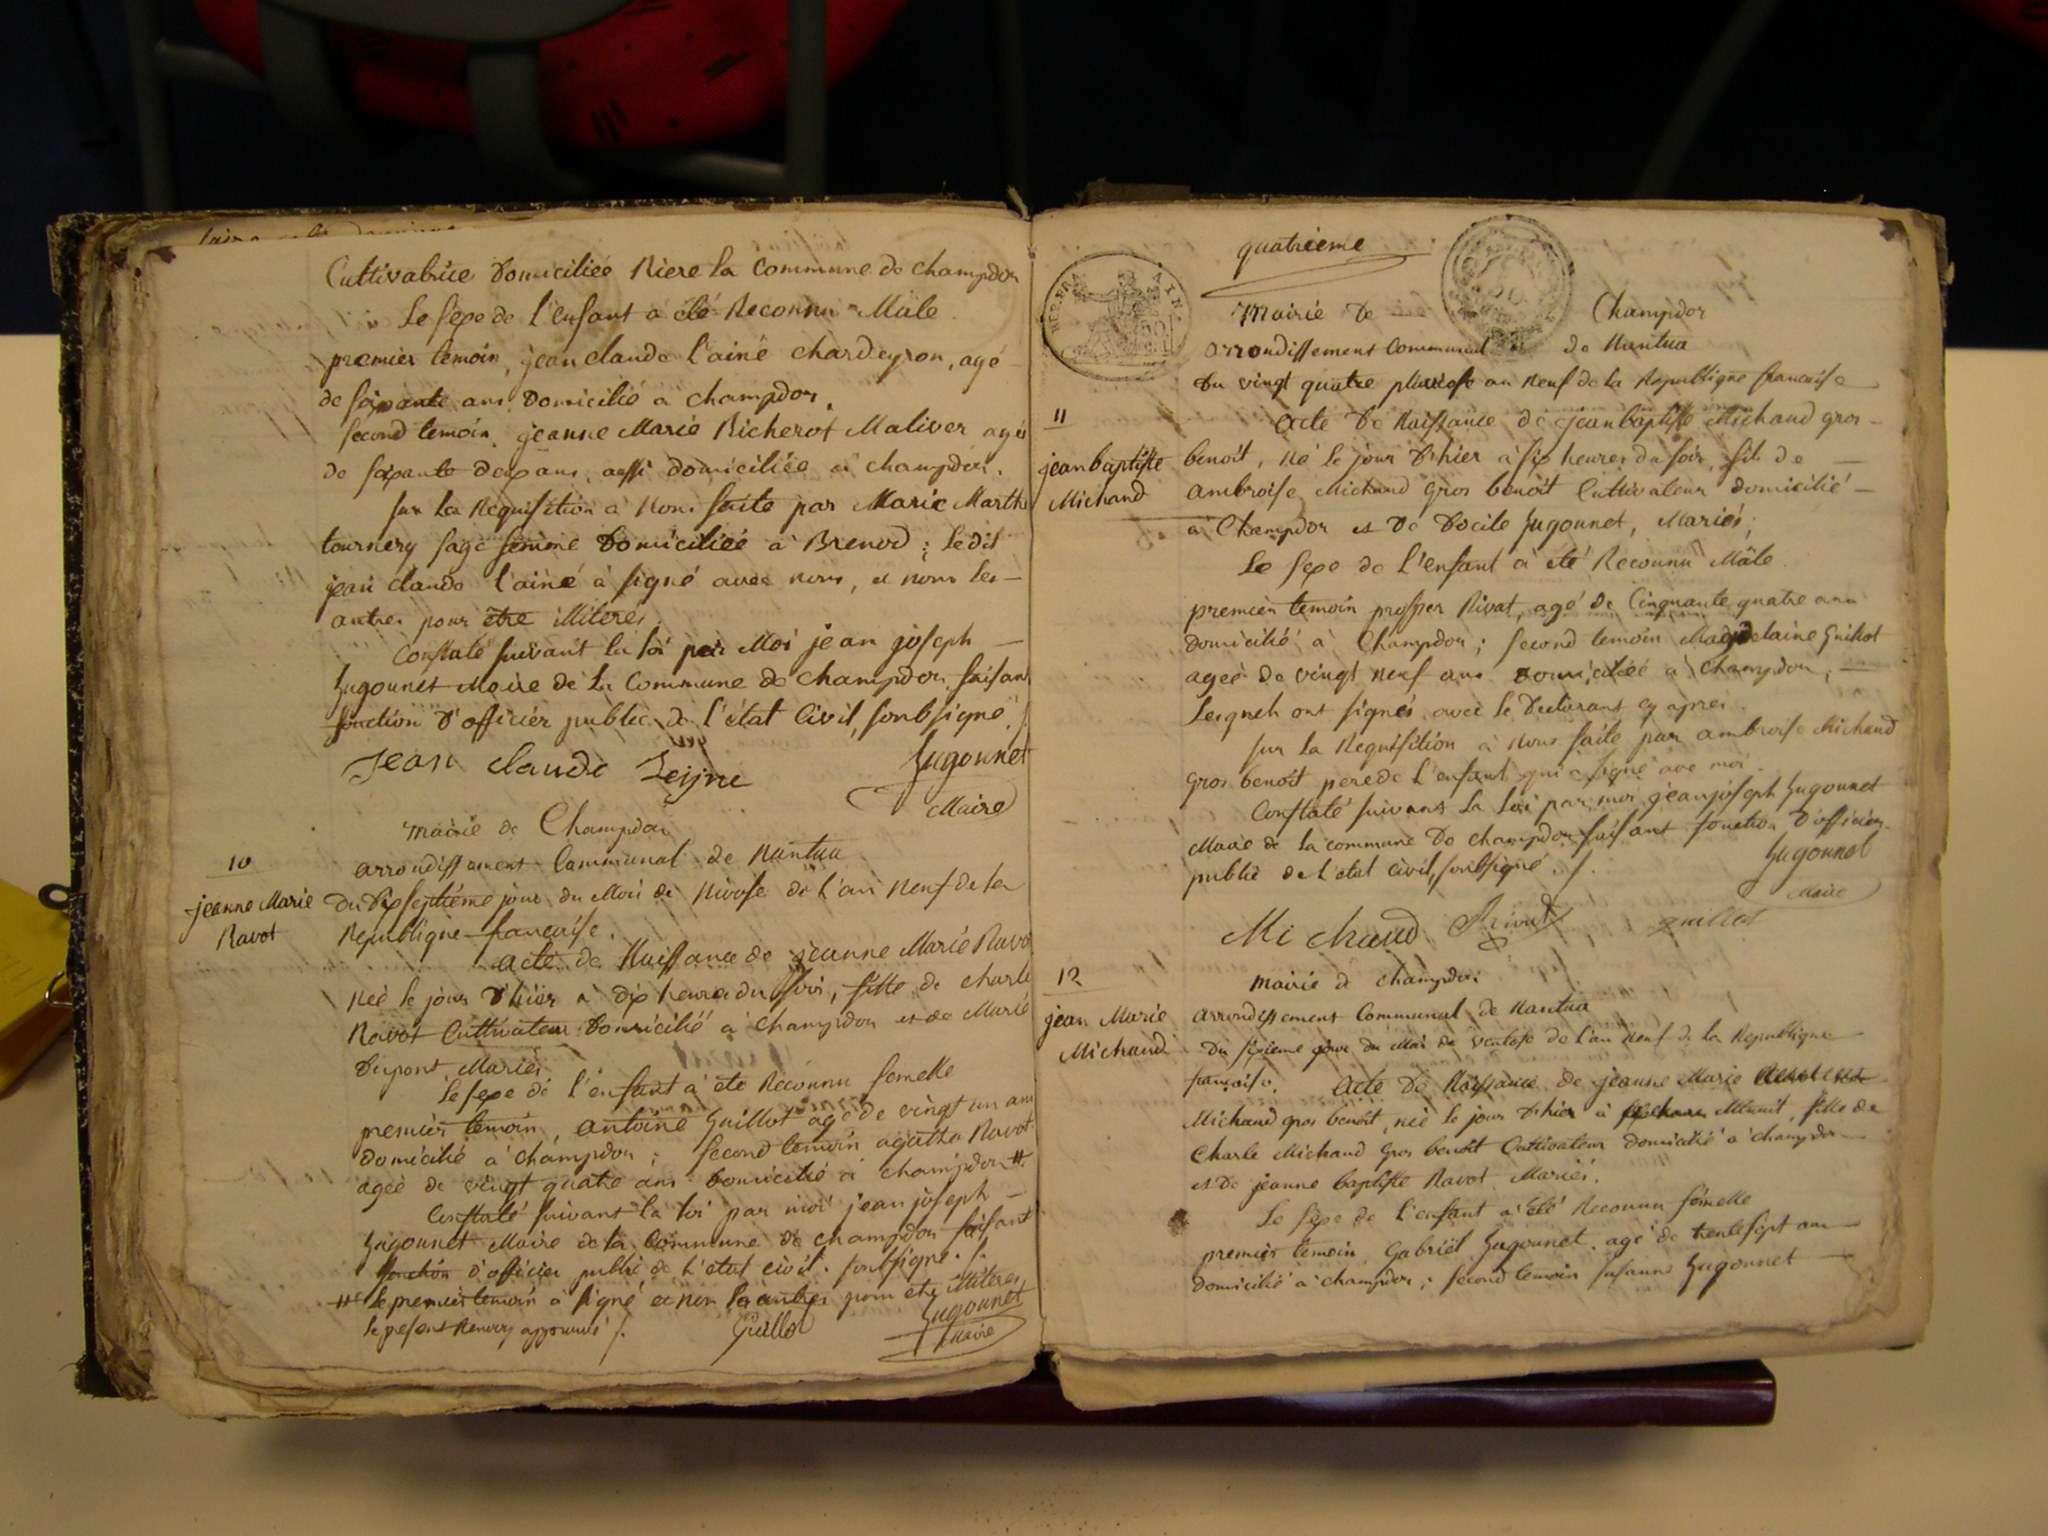 Cultivatrice Domiciliée Riere la Commune de Champdor
Le sexe de l'enfant a été Reconnu Mâle
premier temoin, jean claude l'ainé chardeyron, agé
de soixante ans Domicilié a champdor.
second temoin, jeanne Marie Richerot Maliver agée
de soixante deux ans, aussi domiciliée a champdor.
sur la Requisition a Nous faite par Marie Marthe
tournery sage femme Domiciliée à Brenod; Le dit
jean claude l'ainé à signé avec nous, et non les
autres pour être illiterés.
Constaté suivant la loi par Moi jean joseph
Jugounet Maire de la Commune de champdor faisant
fonction d'officier public de l'état Civil, soubsigné
Jean claude
Jugounet
Maire
mairie de Champdor
10
jeanne Marie
Ravot
arrondissement Communal de Nantua
Du dixseptiéme jour du Mois de Nivose de l'an Neuf de la
Republique francaise.
acte de Naissance de jeanne Marie Ravot
Née le jour d'hier a dix heures du soir, fille de Charle
Ravot Cultivateur Domicilié a Champdor et de Marie
Dupont Mariés
Le sexe de l'enfant a été Reconnu femelle
premier temoin, antoine Guillot agé de vingt un ans
domicilié a champdor; second temoin agatha Ravot
agée de vingt quatre ans Domicilié a champdor #.
Constaté suivant la loi par moi jean joseph
Jugounet Maire de la Commune de champdor faisant
fonction d'officier public de l'état civil. soubsigné ./.
# Le premier temoin a signé et non les autres pour etre illiteres
le present Renvoy approuvé /.
Guillot
Jugounet
Maire
quatrieme
REP. FRA
AIN
Mairie De Champdor
arrondissement Communal de Nantua
Du vingt quatre pluviose an Neuf de la Republique francaise
11
jean baptiste
Michaud
acte De Naissance de jean baptiste Michaud gros
benoit, Né le jour d'hier à six heures du soir, fils de
ambroise Michaud gros benoit Cultivateur domicilié
a Champdor et De Docile Jugounet, Mariés;
Le sexe de l'enfant a été Reconnu Mâle
premier temoin prosper Rivat, agé de Cinquante quatre ans
Domicilié a Champdor; second temoin Magdelaine Guillot
agée de vingt neuf ans Domiciliée a Champdor,
Lesquels ont signés avec le Declarant cy apres
sur la Requisition à Nous faite par ambroise Michaud
gros benoit pere de l'enfant qui a signé avec moi
Constaté suivant la Loi par moi jean joseph Jugounet
Maire de la commune De champdor faisant fonction d'officier
public de l'état civil, soubsigné. /.
Jugounet
Maire
Michaud Rivat guillot
12
jean Marie
Michaud
mairie de champdor
arrondissement Communal de Nantua
Du sixieme jour du Mois de ventose de l'an Neuf de la Republique
française. Acte De Naissance de jeanne Marie
Michaud gros benoit, née le jour d'hier à Minuit, fille de
Charle Michaud gros benoit Cultivateur domicilié a champdor
et De jeanne baptiste Ravot Mariés.
Le sexe de l'enfant a été Reconnu femelle
premier temoin Gabriel Jugounet, agé de trente sept ans
domicilié a champdor; second temoin susanne Jugounet